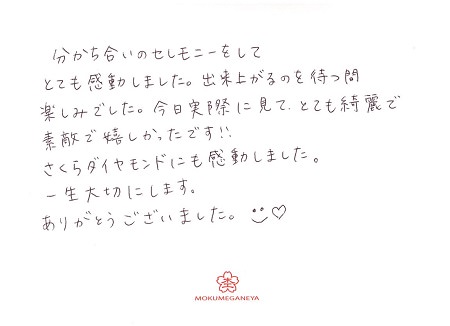 分かち合いのセレモニーをして
とても感動しました。出来上がるのを待つ間
楽しみでした。今日実際に見て、とても綺麗で
素敵で嬉しかったです!!
さくらダイヤモンドにも感動しました。
一生大切にします。
ありがとうございました。
MOKUMEGANEYA